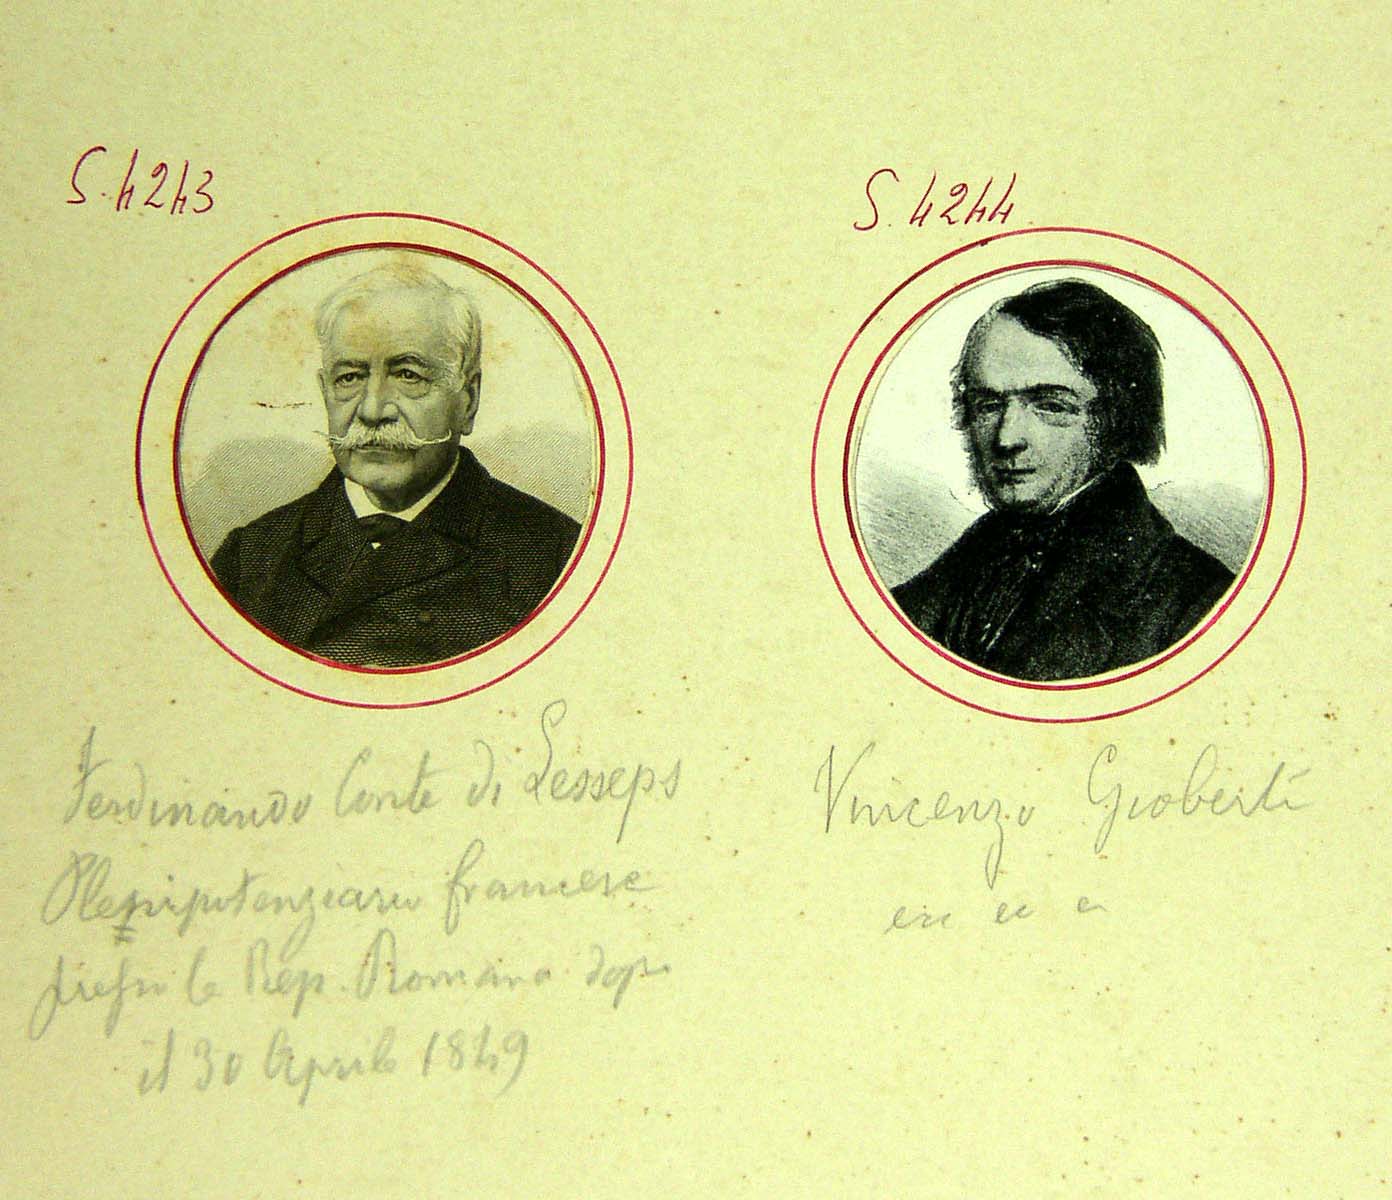 S. 4243
S. 4244
Ferdinando Conte di Lesseps
Plenipotenziario francese
presso la Rep. Romana dopo
il 30 Aprile 1849
Vincenzo Gioberti
ecc ec e